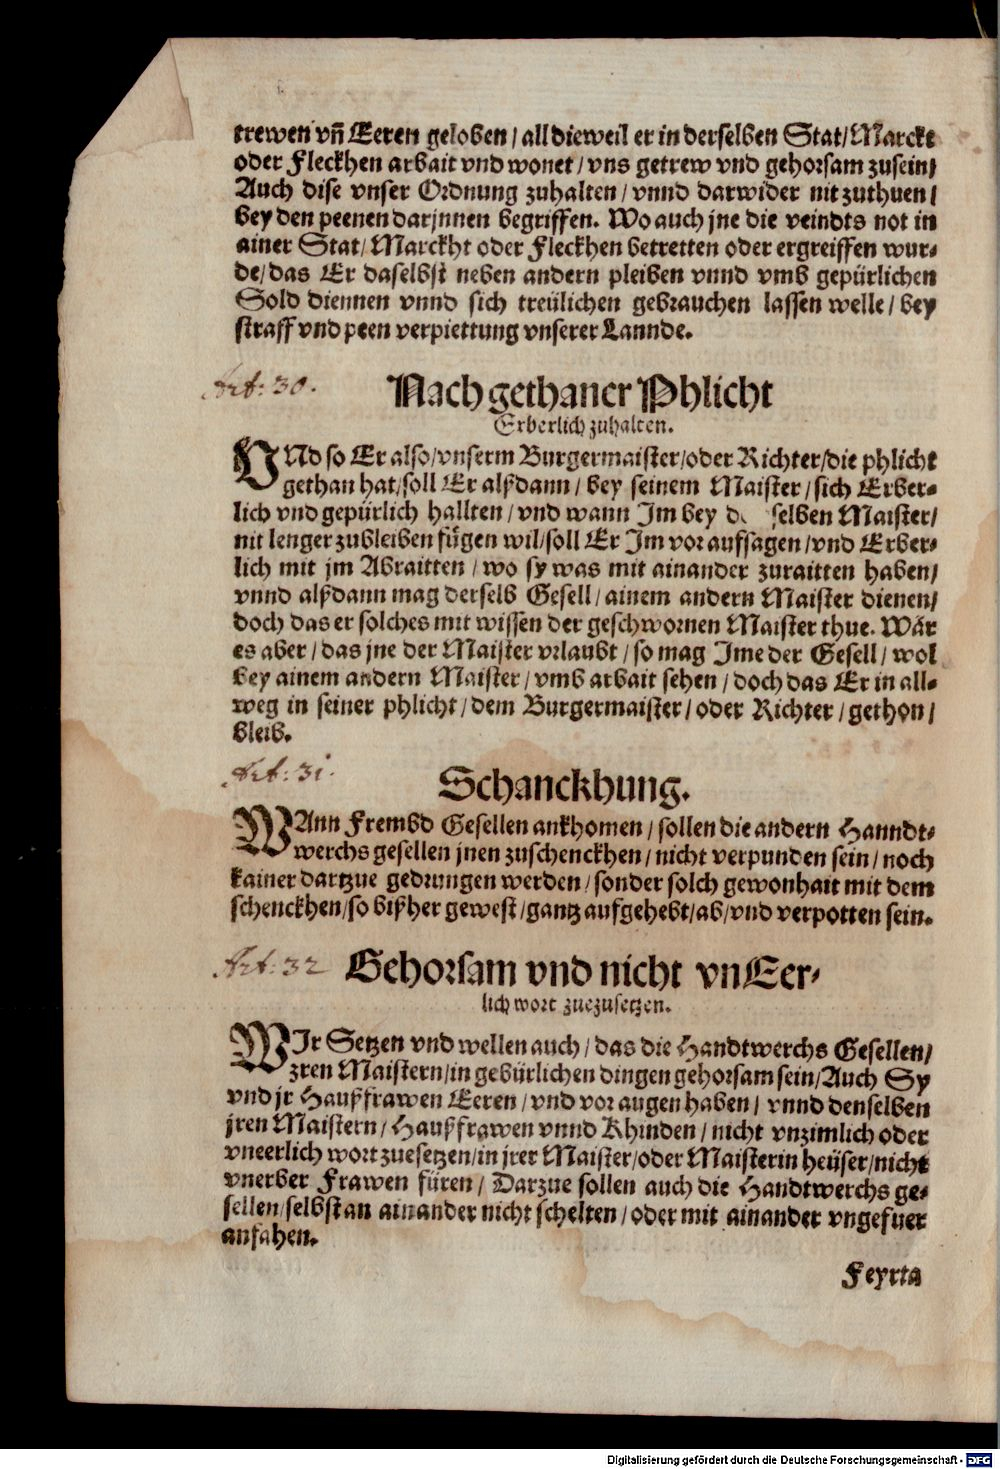 trewen vnd̄ Eeren geloben / all dieweil er in derselben Stat / Marckt
oder Fleckhen arbait vnd wonet / vns getrew vnd gehorsam zusein /
Auch dise vnser Ordnung zuhalten / vnnd darwider nit zuthuen /
bey den peenen darjnnen begriffen. Wo auch jne die veindts not in
ainer Stat / Marckht oder Fleckhen betretten oder ergreiffen wur-
de / das Er daselbst neben andern pleiben vnnd vmb gepürlichen
Sold diennen vnnd sich treülichen gebrauchen lassen welle / bey
straff vnd peen verpiettung vnserer Lannde.
Art: 30.
Nach gethaner Phlicht
Erberlich zuhalten.
VNd so Er also / vnserm Burgermaister / oder Richter / die phlicht
gethan hat / soll Er alßdann / bey seinem Maister / sich Erber-
lich vnd gepürlich hallten / vnd wann Im bey selben Maister /
nit lenger zubleiben fuͤgen wil / soll Er Im vor aufsagen / vnd Erber-
lich mit jm Abraitten / wo sy was mit ainander zuraitten haben /
vnnd alßdann mag derselb Gesell / ainem andern Maister dienen /
doch das er solches mit wissen der geschwornen Maister thue. Wår
es aber / das jne der Maister vrlaubt / so mag Ime der Gesell / wol
bey ainem andern Maister / vmb arbait sehen / doch das Er in all-
weg in seiner phlicht / dem Burgermaister / oder Richter / gethon /
bleib.
Art: 31.
Schanckhung.
WAnn Frembd Gesellen ankhomen / sollen die andern Hanndt-
werchs gesellen jnen zuschenckhen / nicht verpunden sein / noch
kainer dartzue gedrungen werden / sonder solch gewonhait mit dem
schenckhen / so bißher gewest / gantz aufgehebt / ab / vnd verpotten sein.
Art: 32
Gehorsam vnd nicht vnEer-
lich wort zuezusetzen.
WIr Setzen vnd wellen auch / das die Handtwerchs Gesellen /
zren Maistern / in gebürlichen dingen gehorsam sein / Auch Sy
vnd jr Haußfrawen Eeren / vnd vor augen haben / vnnd denselben
jren Maistern / Haußfrawen vnnd Khinden / nicht vnzimlich oder
vneerlich wort zuesetzen / in jrer Maister / oder Maisterin heüser / nicht
vnerber Frawen füren / Darzue sollen auch die Handtwerchs ge-
sellen / selbst an ainander nicht schelten / oder mit ainander vngefuer
anfahen.
Feyrta
Digitalisierung gefördert durch die Deutsche Forschungsgemeinschaft - DFG